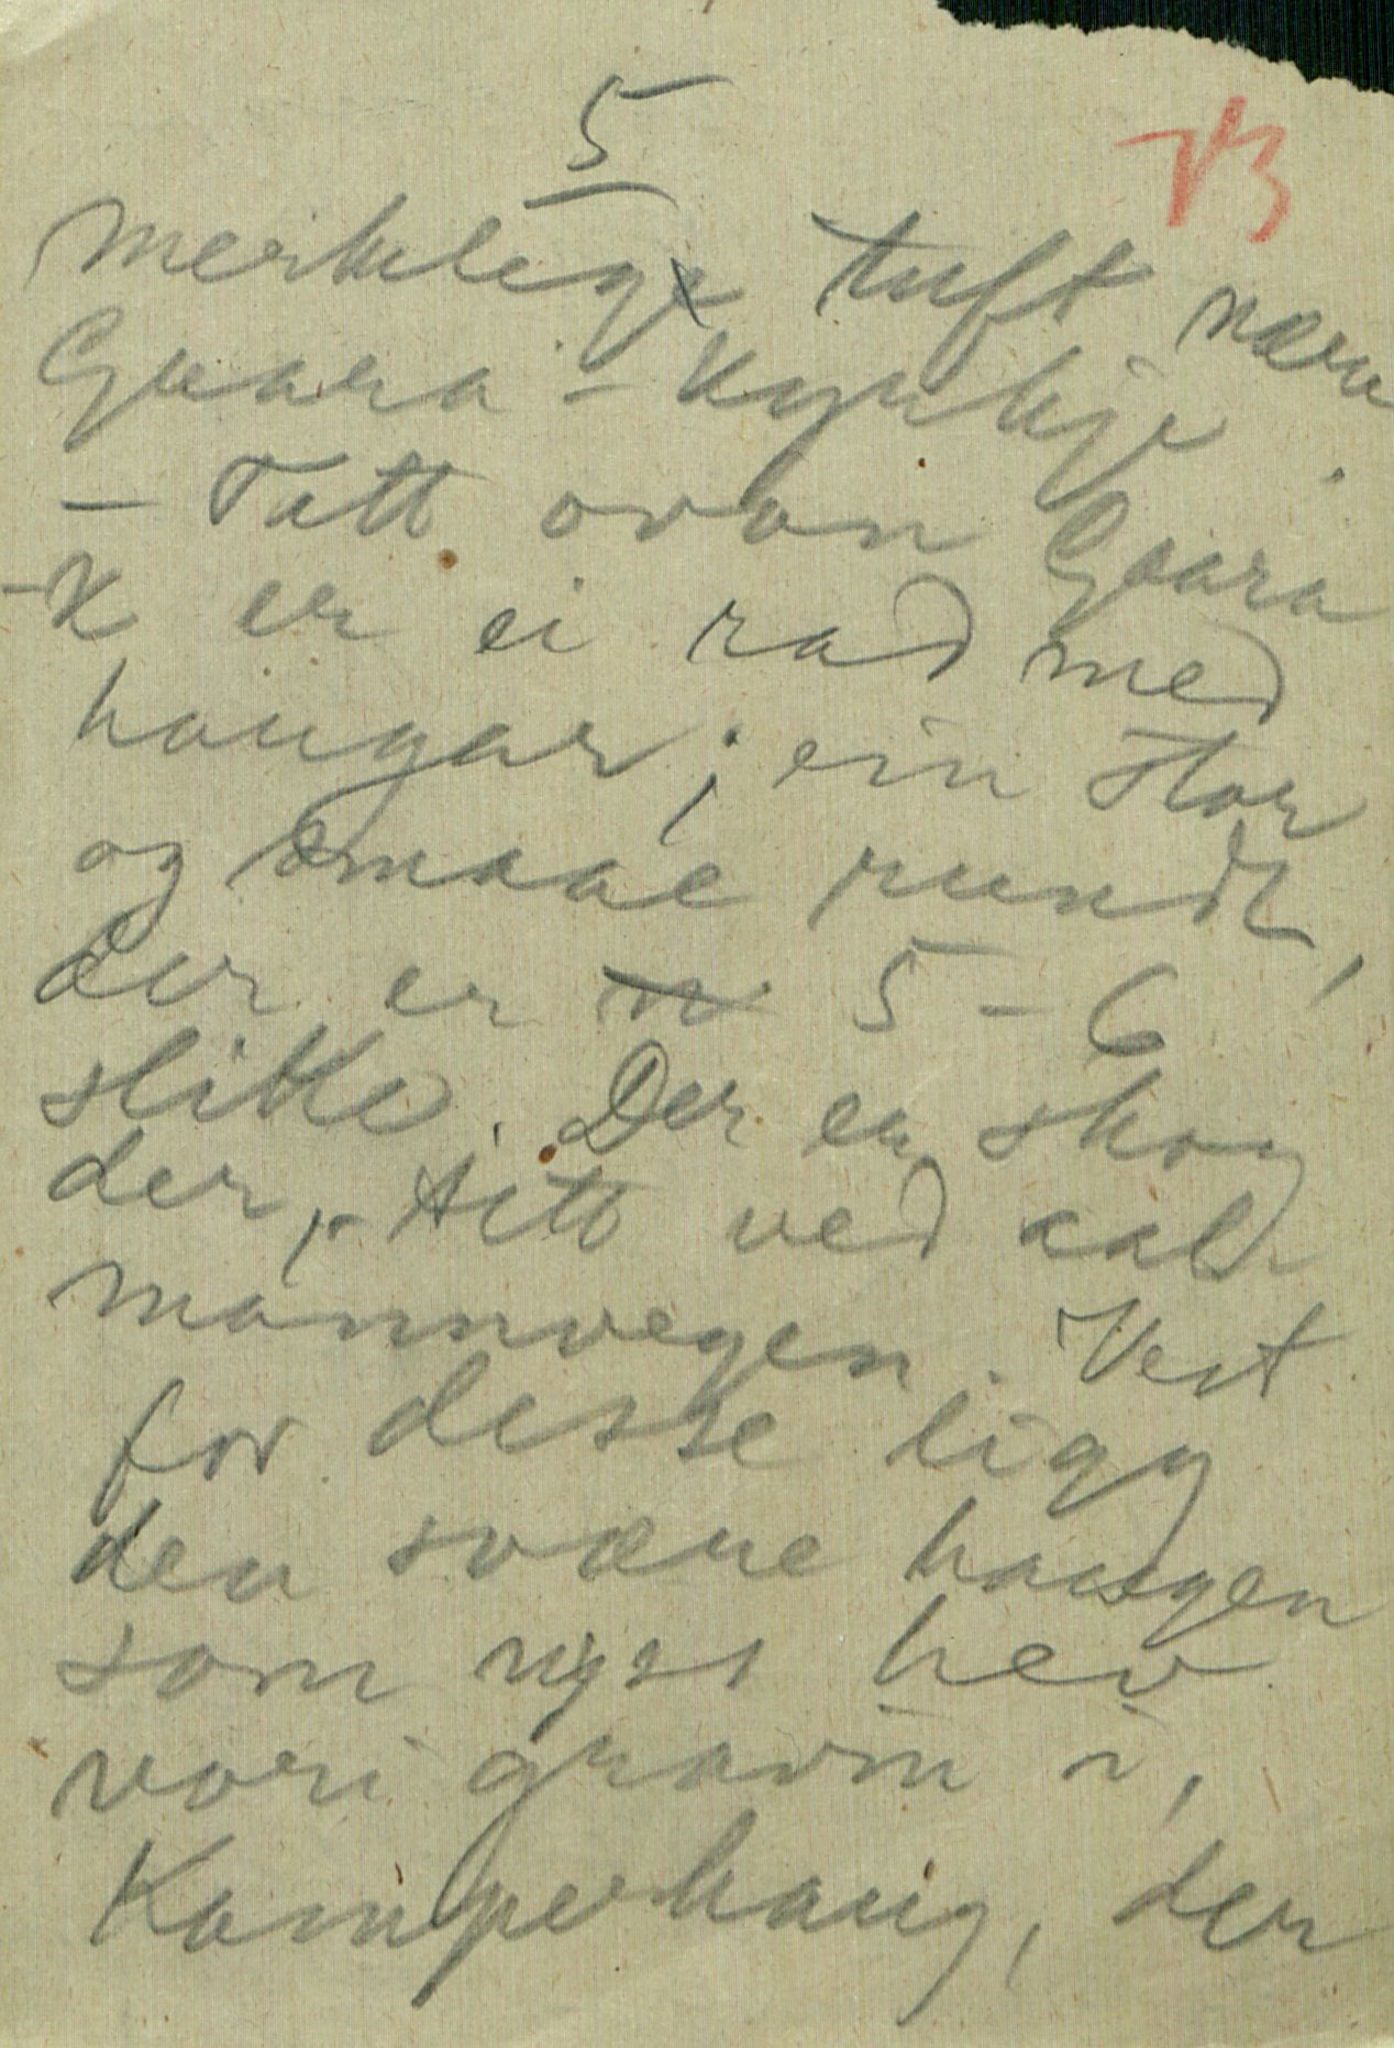 5
73
merkeleg tuft nære
Gvara-kyrkje.
- Tett ovan Gvara
-K er ei rad med
haugar; ein stor
og smaae rundt,
der er 5-6
slike. Der er skog
der, - tett ved aal-
mannvegen. Vest
for desse ligg
den svære haugen
som nyss hev
vori gravin i,
Kamperhaug, der